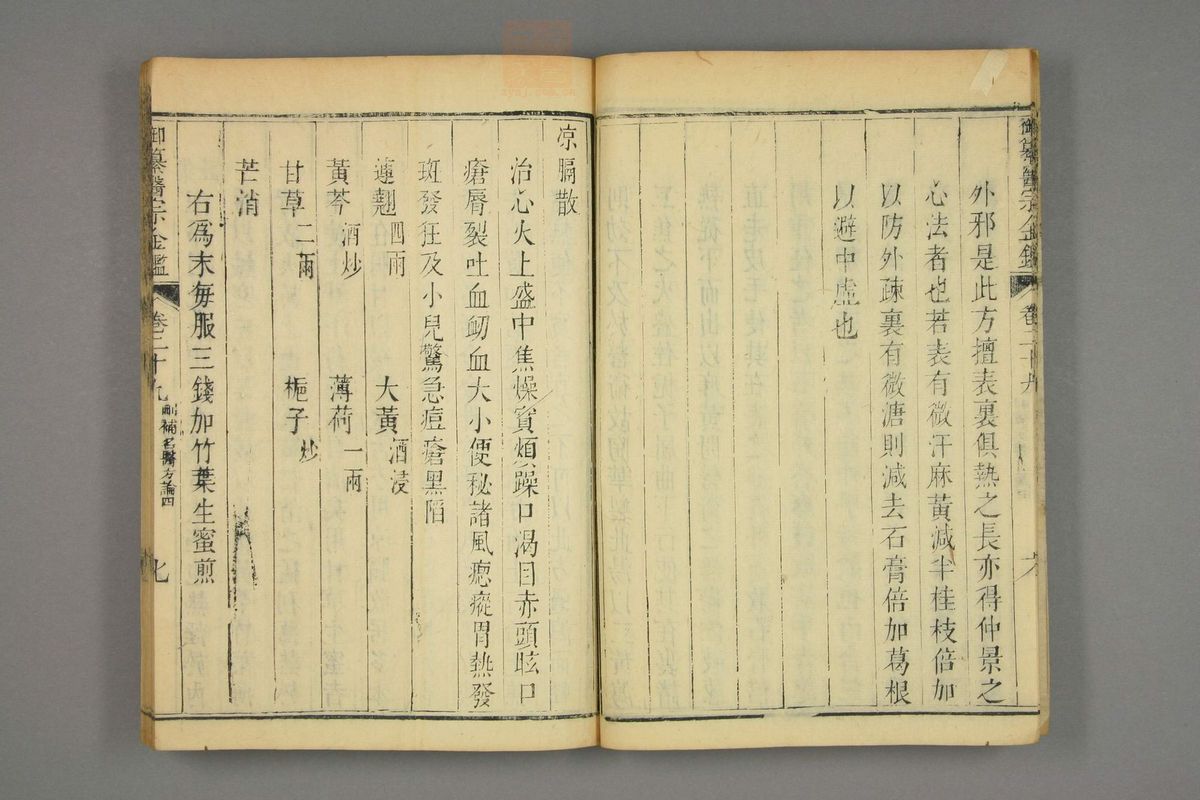 外邪是此方擅表裏俱熱之長亦得仲景之
心法者也若表有微汗麻黃減半桂枝倍加
以防外疎裏有微溏則減去石膏倍加葛根
以避中虛也
凉膈散
治心火上盛中焦燥實煩躁口渴目赤頭眩口
瘡脣裂吐血衂血大小便秘諸風瘛瘲胃熱發
斑發狂及小兒驚急痘瘡黑陷
連翹四兩 大黃酒浸
黃芩酒炒 薄荷一兩
甘草二兩 梔子炒
芒消
右爲末每服三錢加竹葉生蜜煎
御纂醫宗金鑑 卷二十九 刪補名醫方論四